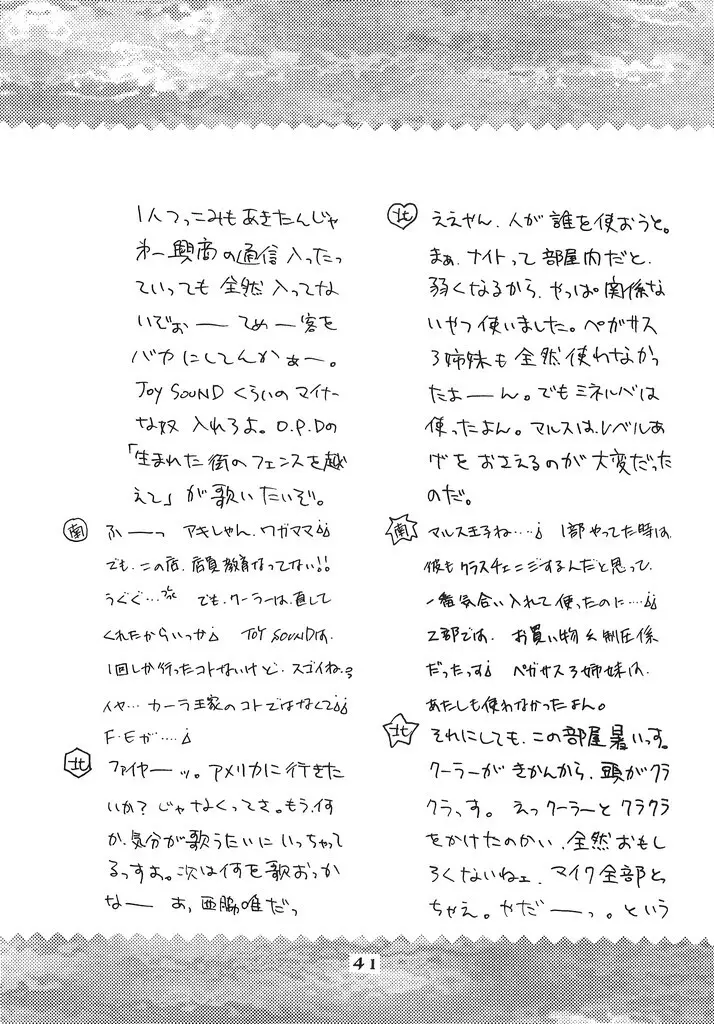 北 ええやん、人が誰を使おうと。
まぁ、ナイトって部屋内だと、
弱くなるから、やっぱ関係な
いやつ使いました。ペガサス
3姉妹も全然使わなかっ
たよーん。でもミネルバは
使ったよん。マルスは、レベルあ
げをおさえるのが大変だった
のだ。
南 マルス王子ね‥‥ 1部やってた時は、
彼もクラスチェンジするんだと思って、
一番気合い入れて使ったのに‥‥
2部では、お買い物&制圧係
だったっす ペガサス3姉妹は、
あたしも使わなかったよん。
北 それにしても、この部屋暑いっす。
クーラーがきかんから、頭がクラ
クラっす。えっクーラーとクラクラ
をかけたのかい、全然おもし
ろくないねェ、マイク全部とっ
ちゃえ。やだーっ。という
1人つっこみもあきたんじゃ
わー興商の通信入ったっ
ていっても全然入ってな
いぞぉー てめー客を
バカにしてんかぁー。
JOY SOUNDくらいのマイナー
な奴入れろよ。O.P.Dの
「生まれた街のフェンスを越
えて」が歌いたいぞ。
南 ふーっ アキしゃん、ワガママ
でも、この店、店員教育なってない!!
うぐぐ… でも、クーラーは、直して
くれたからいっか JOY SOUNDは、
1回しか行ったコトないけど、スゴイね、
イヤ… カーラ王家のコトではなくて
F・Eが‥‥
北 ファイヤーッ。アメリカに行きた
いか?じゃなくってさ。もう、何
か、気分が歌うたいにいっちゃって
るっすよ。次は何を歌おっか
なー あ、西脇唯だっ
41